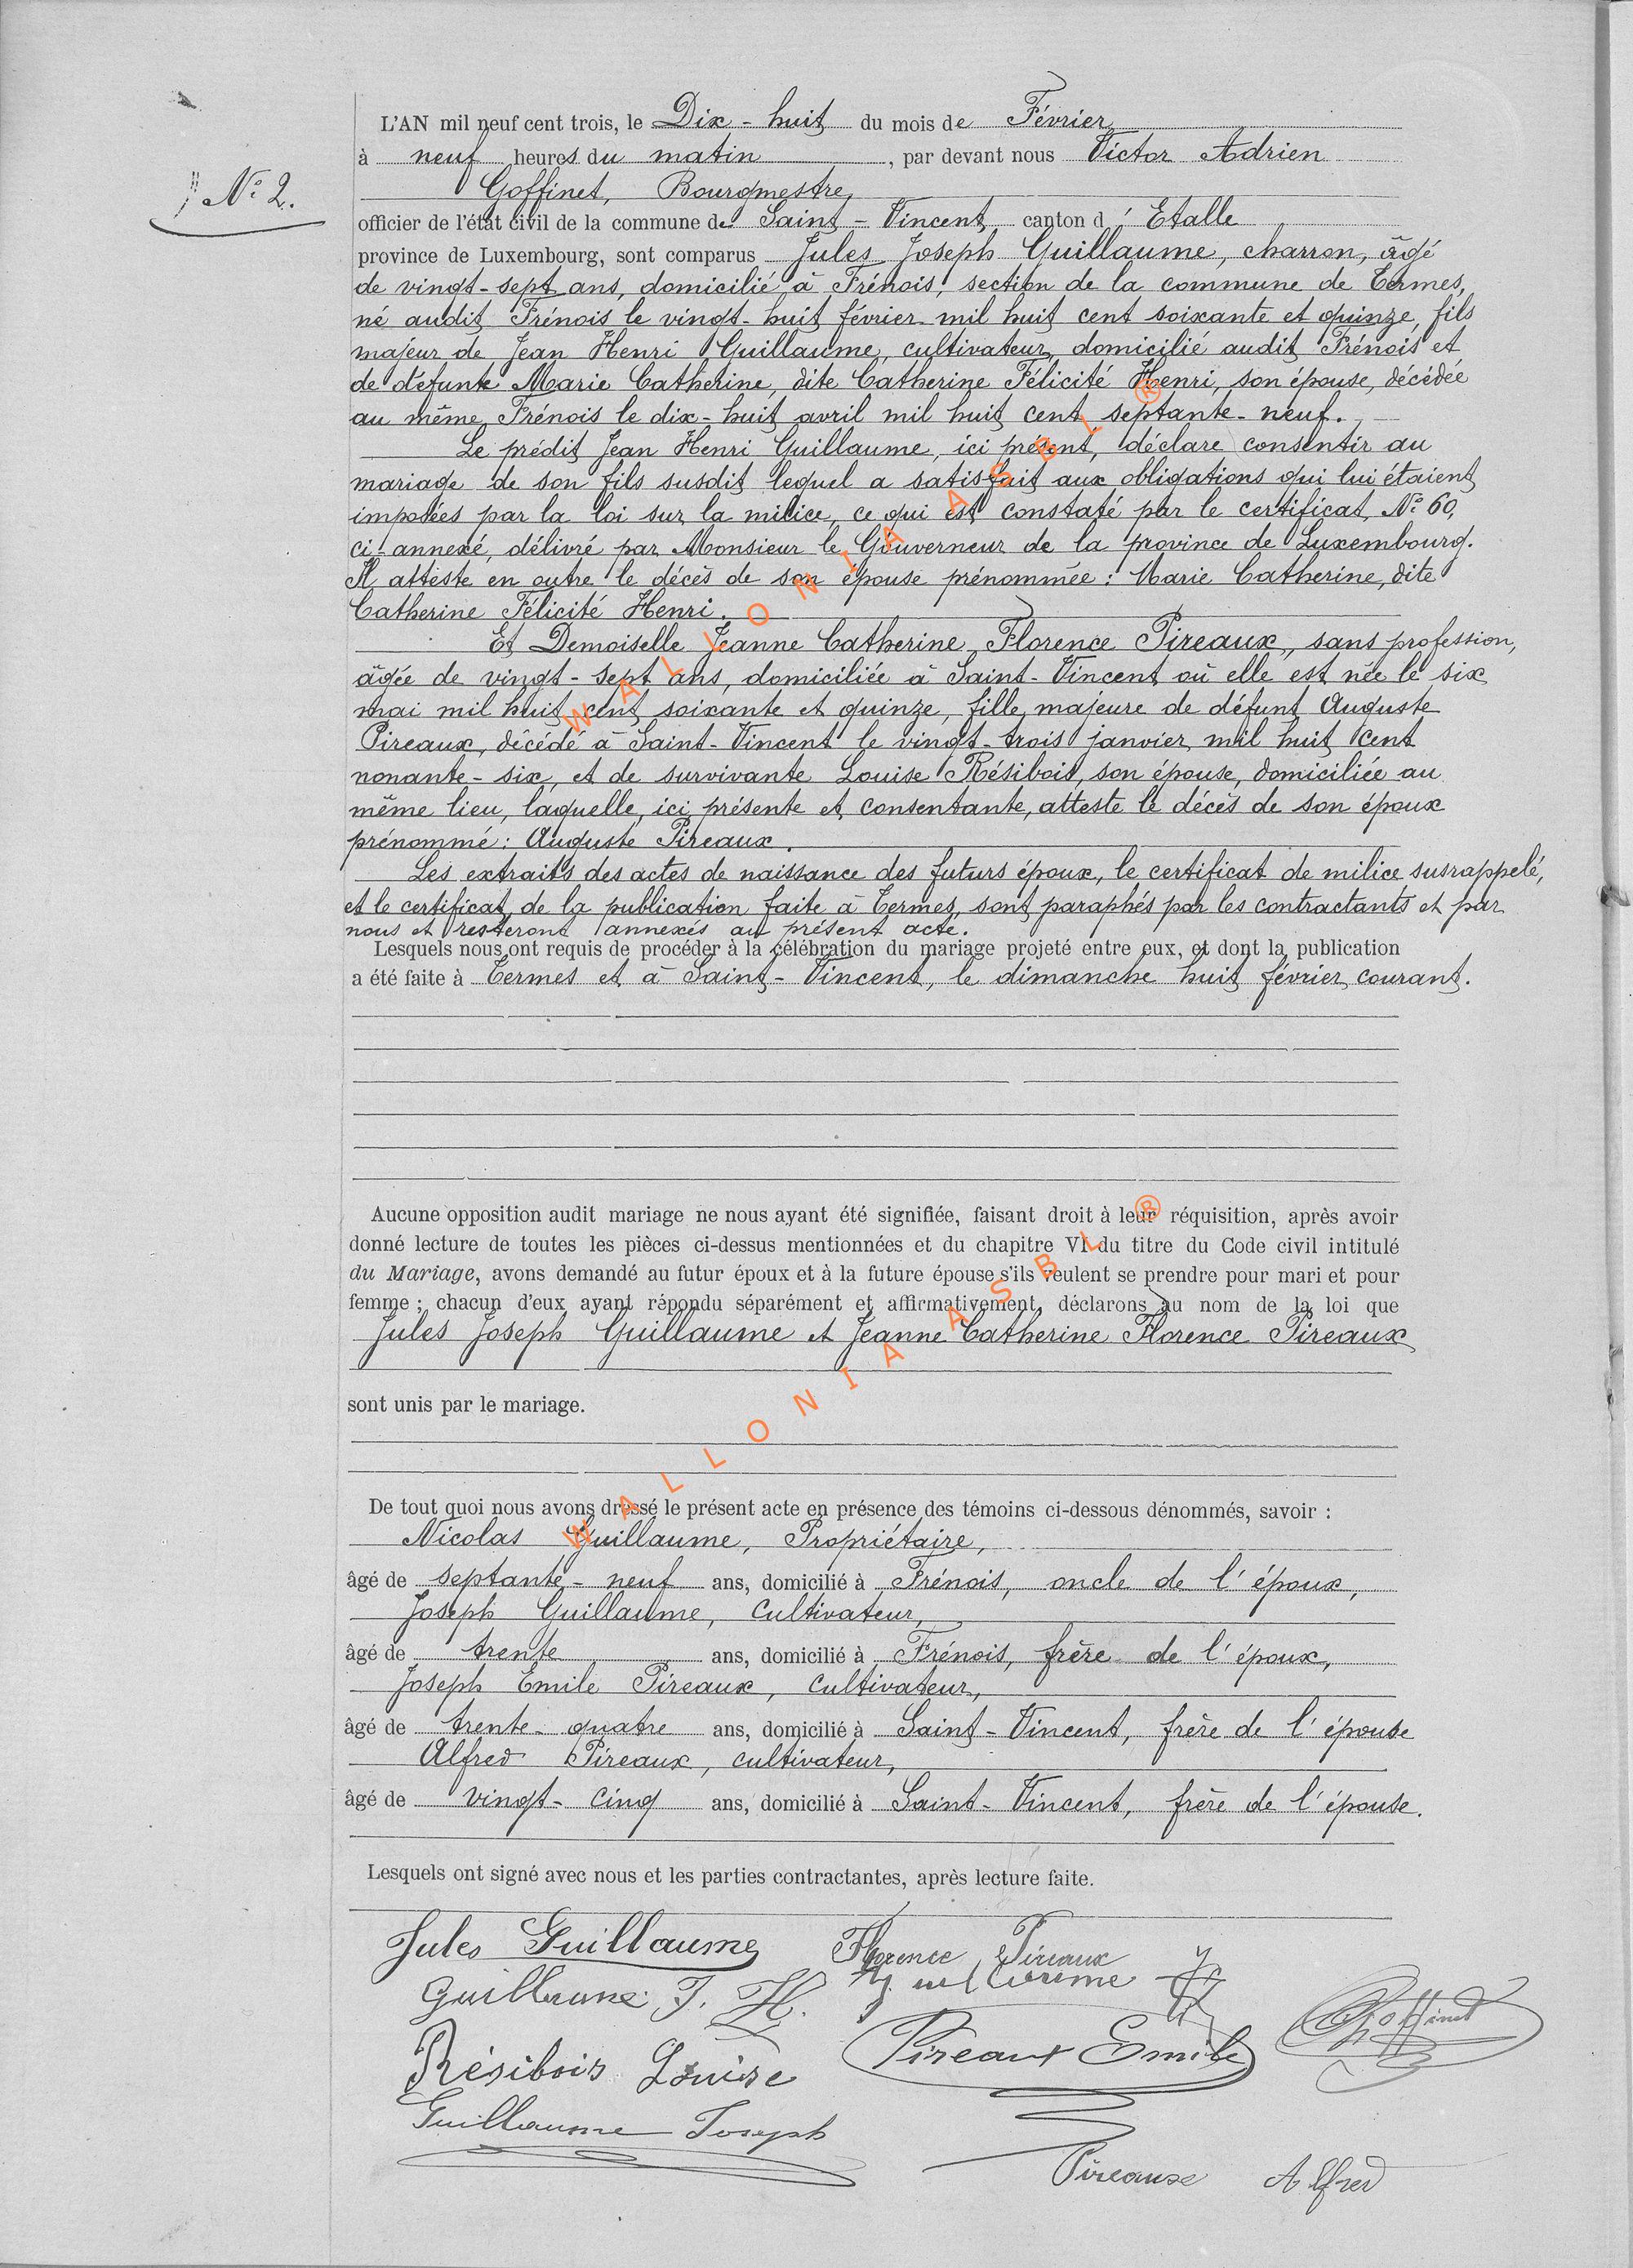 L'AN mil neuf cent trois, le Dix-huit du mois de Février
à neuf heures du matin, par devant nous Victor Adrien
N° 2.
Goffinet, Bourgmestre,
officier de l'état civil de la commune de Saint-Vincent, canton d'Etalle
province de Luxembourg, sont comparus Jules Joseph Guillaume, charron, âgé
de vingt-sept ans, domicilié à Frénois, section de la commune de Termes,
né audit Frénois le vingt-huit février mil huit cent soixante et quinze, fils
majeur de Jean Henri Guillaume, cultivateur, domicilié audit Frénois et
de défunte Marie Catherine, dite Catherine Félicité Henri, son épouse, décédée
au même Frénois le dix-huit avril mil huit cent septante-neuf.
Le prédit Jean Henri Guillaume, ici présent, déclare consentir au
mariage de son fils susdit lequel a satisfait aux obligations qui lui étaient
imposées par la loi sur la milice, ce qui est constaté par le certificat, N° 60,
ci-annexé, délivré par Monsieur le Gouverneur de la province de Luxembourg.
Il atteste en outre le décès de son épouse prénommée : Marie Catherine, dite
Catherine Félicité Henri.
Et Demoiselle Jeanne Catherine Florence Pireaux, sans profession,
âgée de vingt-sept ans, domiciliée à Saint-Vincent où elle est née le six
mai mil huit cent soixante et quinze, fille majeure de défunt Auguste
Pireaux, décédé à Saint-Vincent le vingt-trois janvier mil huit cent
nonante-six, et de survivante Louise Résibois, son épouse, domiciliée au
même lieu, laquelle, ici présente et consentante, atteste le décès de son époux
prénommé : Auguste Pireaux.
Les extraits des actes de naissance des futurs époux, le certificat de milice susrappelé,
et le certificat de la publication faite à Termes, sont paraphés par les contractants et par
nous et resteront annexés au présent acte.
Lesquels nous ont requis de procéder à la célébration du mariage projeté entre eux, et dont la publication
a été faite à Termes et à Saint-Vincent, le dimanche huit février courant.
Aucune opposition audit mariage ne nous ayant été signifiée, faisant droit à leur réquisition, après avoir
donné lecture de toutes les pièces ci-dessus mentionnées et du chapitre VI du titre du Code civil intitulé
du Mariage, avons demandé au futur époux et à la future épouse s'ils veulent se prendre pour mari et pour
femme ; chacun d'eux ayant répondu séparément et affirmativement, déclarons au nom de la loi que
Jules Joseph Guillaume et Jeanne Catherine Florence Pireaux
sont unis par le mariage.
De tout quoi nous avons dressé le présent acte en présence des témoins ci-dessous dénommés, savoir :
Nicolas Guillaume, Propriétaire,
âgé de septante-neuf ans, domicilié à Frénois, oncle de l'époux,
Joseph Guillaume, cultivateur,
âgé de trente ans, domicilié à Frénois, frère de l'époux,
Joseph Emile Pireaux, cultivateur,
âgé de trente-quatre ans, domicilié à Saint-Vincent, frère de l'épouse
Alfred Pireaux, cultivateur,
âgé de vingt-cinq ans, domicilié à Saint-Vincent, frère de l'épouse.
Lesquels ont signé avec nous et les parties contractantes, après lecture faite.
Jules Guillaume Florence Pireaux
Guillaume J. H.
Goffinet
Résibois Louise Pireaux Emile
Guillaume Joseph
Pireaux Alfred
WALLONIA ASBL ®
WALLONIA ASBL ®